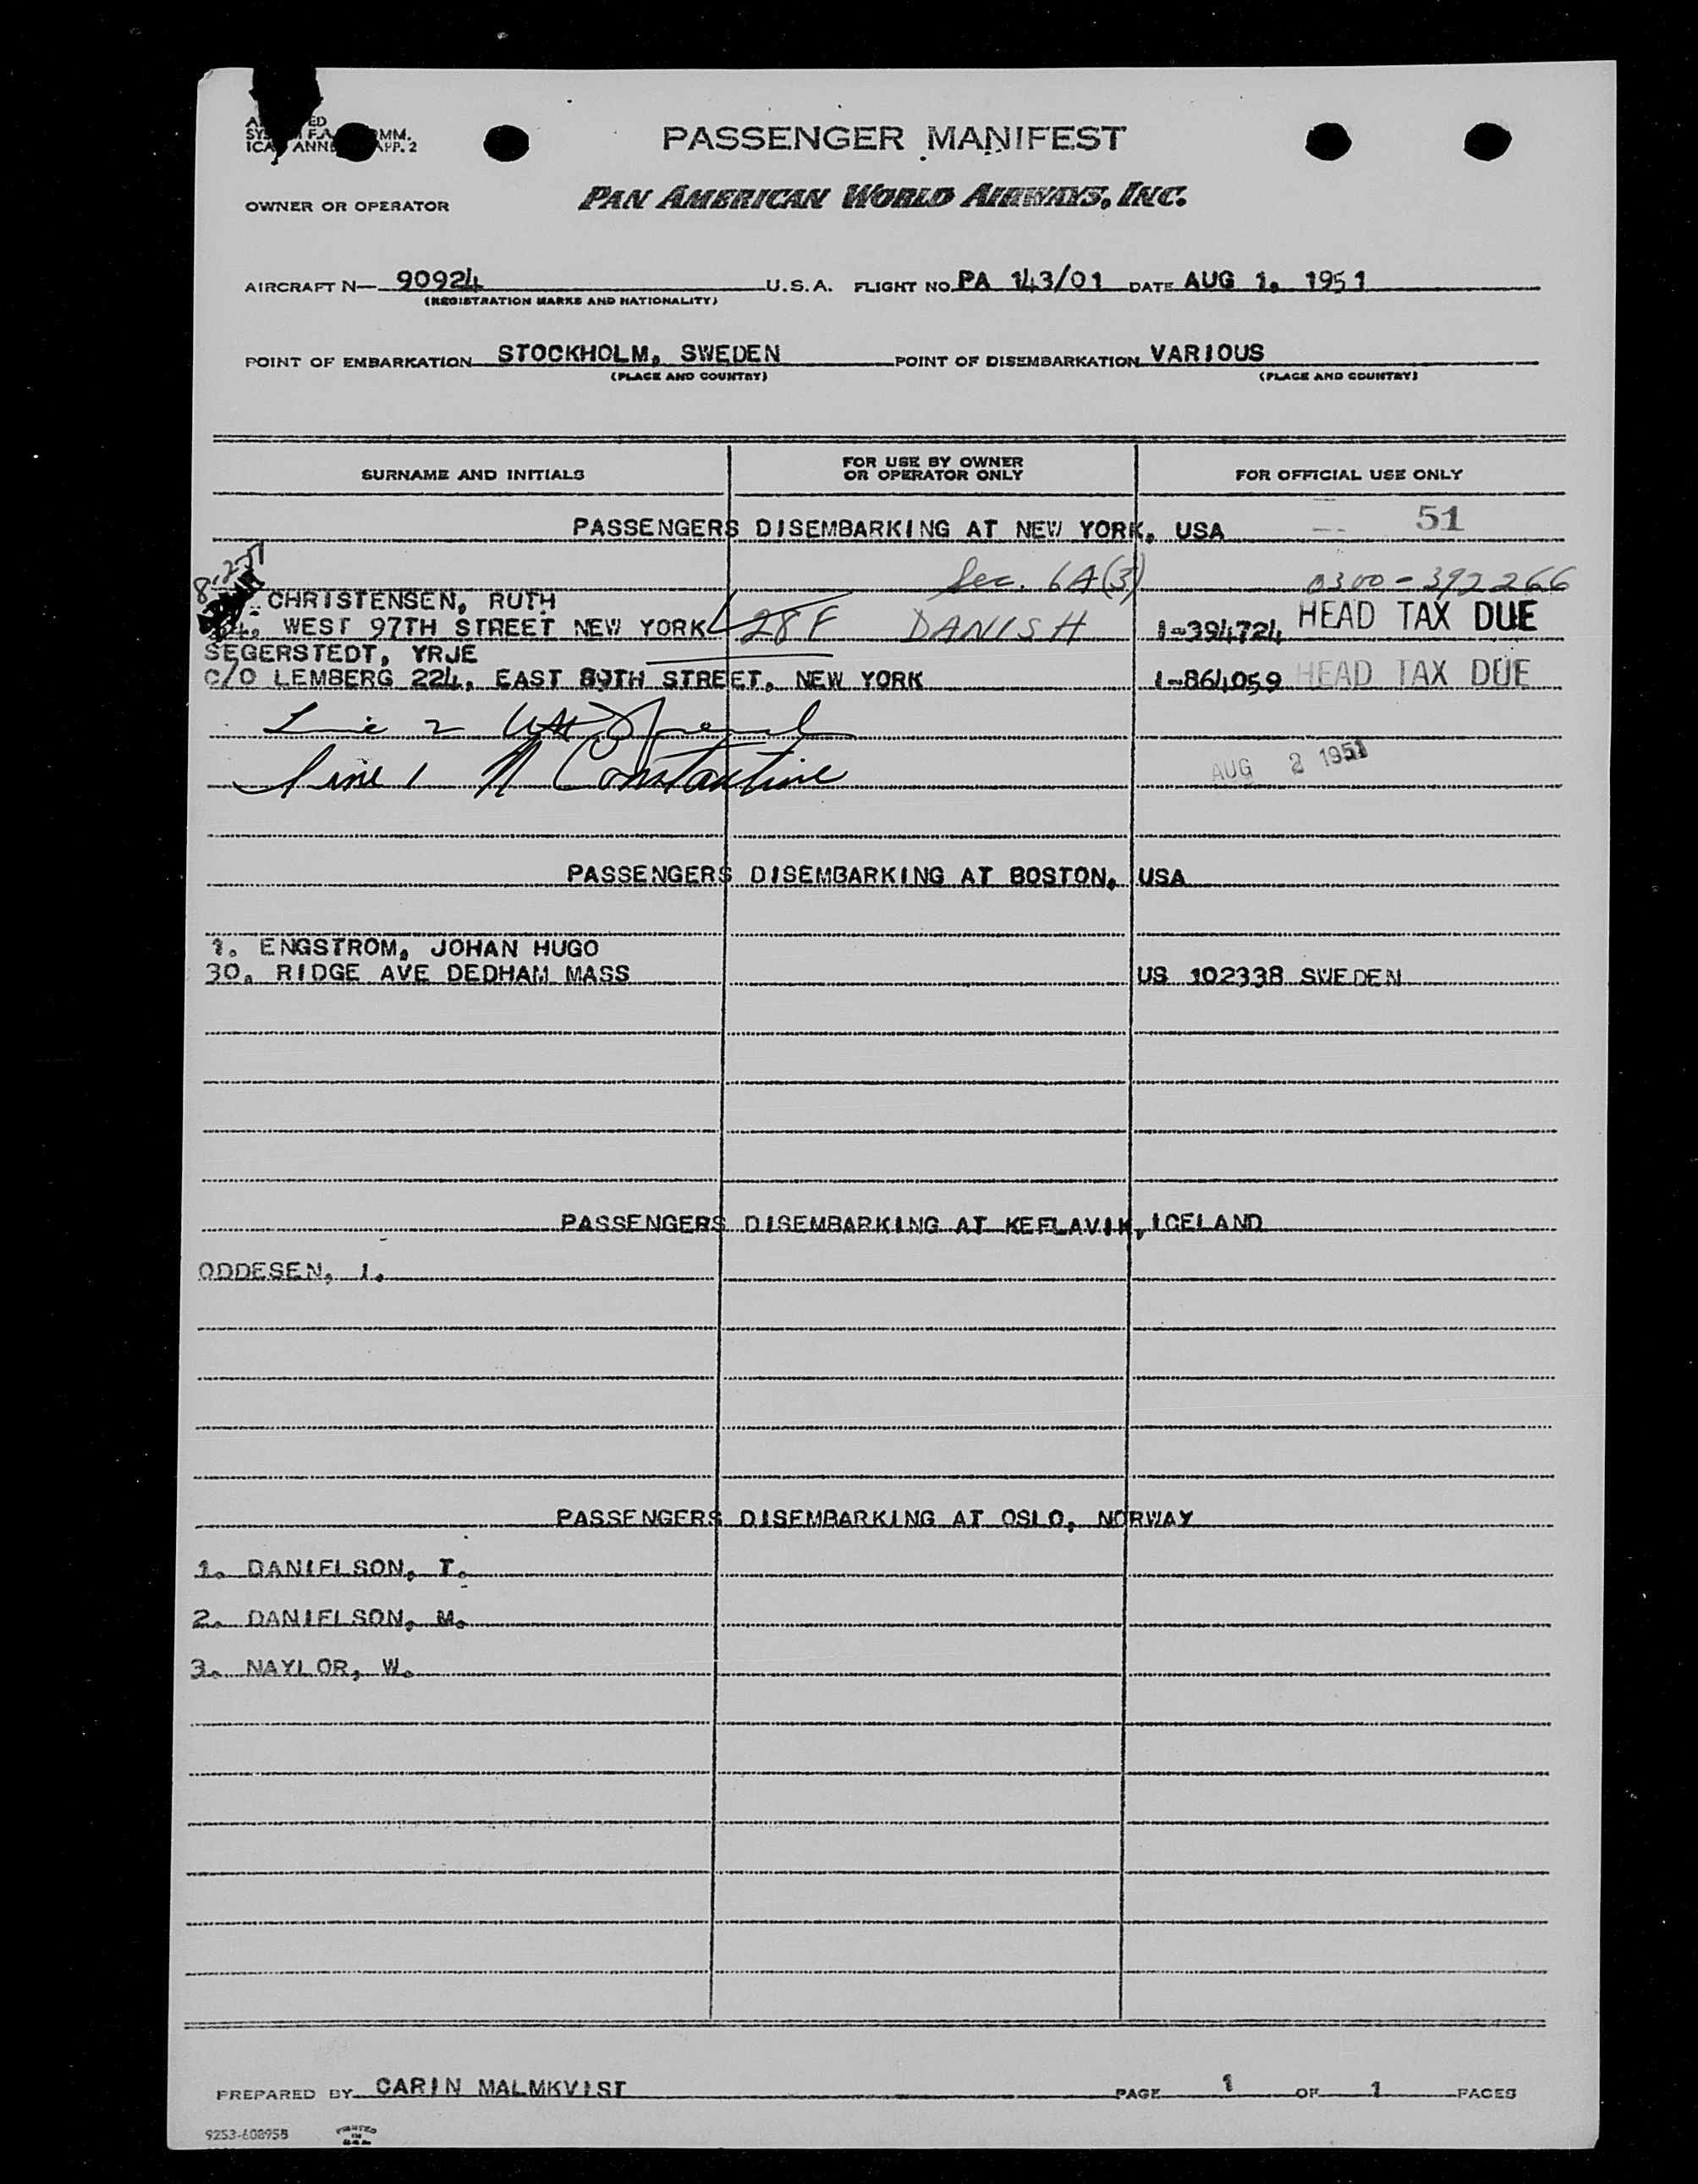 PASSENGER MANIFEST
OWNER OR OPERATOR PAN AMERICAN WORLD AIRWAYS, INC.
AIRCRAFT N— 90924 U.S.A. FLIGHT NO. PA 143/01 DATE AUG 1. 1951
(REGISTRATION MARKS AND NATIONALITY)
POINT OF EMBARKATION STOCKHOLM, SWEDEN POINT OF DISEMBARKATION VARIOUS
(PLACE AND COUNTRY) (PLACE AND COUNTRY)
SURNAME AND INITIALS FOR USE BY OWNER OR OPERATOR ONLY FOR OFFICIAL USE ONLY
PASSENGERS DISEMBARKING AT NEW YORK, USA 51
Sec. 6A(3) 0300-392266
CHRISTENSEN, RUTH
WEST 97TH STREET NEW YORK 28F DANISH I-394724 HEAD TAX DUE
SEGERSTEDT, YRJE
C/O LEMBERG 224, EAST STREET, NEW YORK I-864059 HEAD TAX DUE
Line 2
Line 1 N Constantine AUG 2 1951
PASSENGERS DISEMBARKING AT BOSTON, USA
1. ENGSTROM, JOHAN HUGO
30. RIDGE AVE DEDHAM MASS US 102338 SWEDEN
PASSENGERS DISEMBARKING AT KEFLAVIK, ICELAND
ODDESEN, I.
PASSENGERS DISEMBARKING AT OSLO, NORWAY
1. DANIELSON, T.
2. DANIELSON, M.
3. NAYLOR, W.
PREPARED BY CARIN MALMKVIST PAGE 1 OF 1 PAGES
9253-60895B PRINTED IN U.S.A.